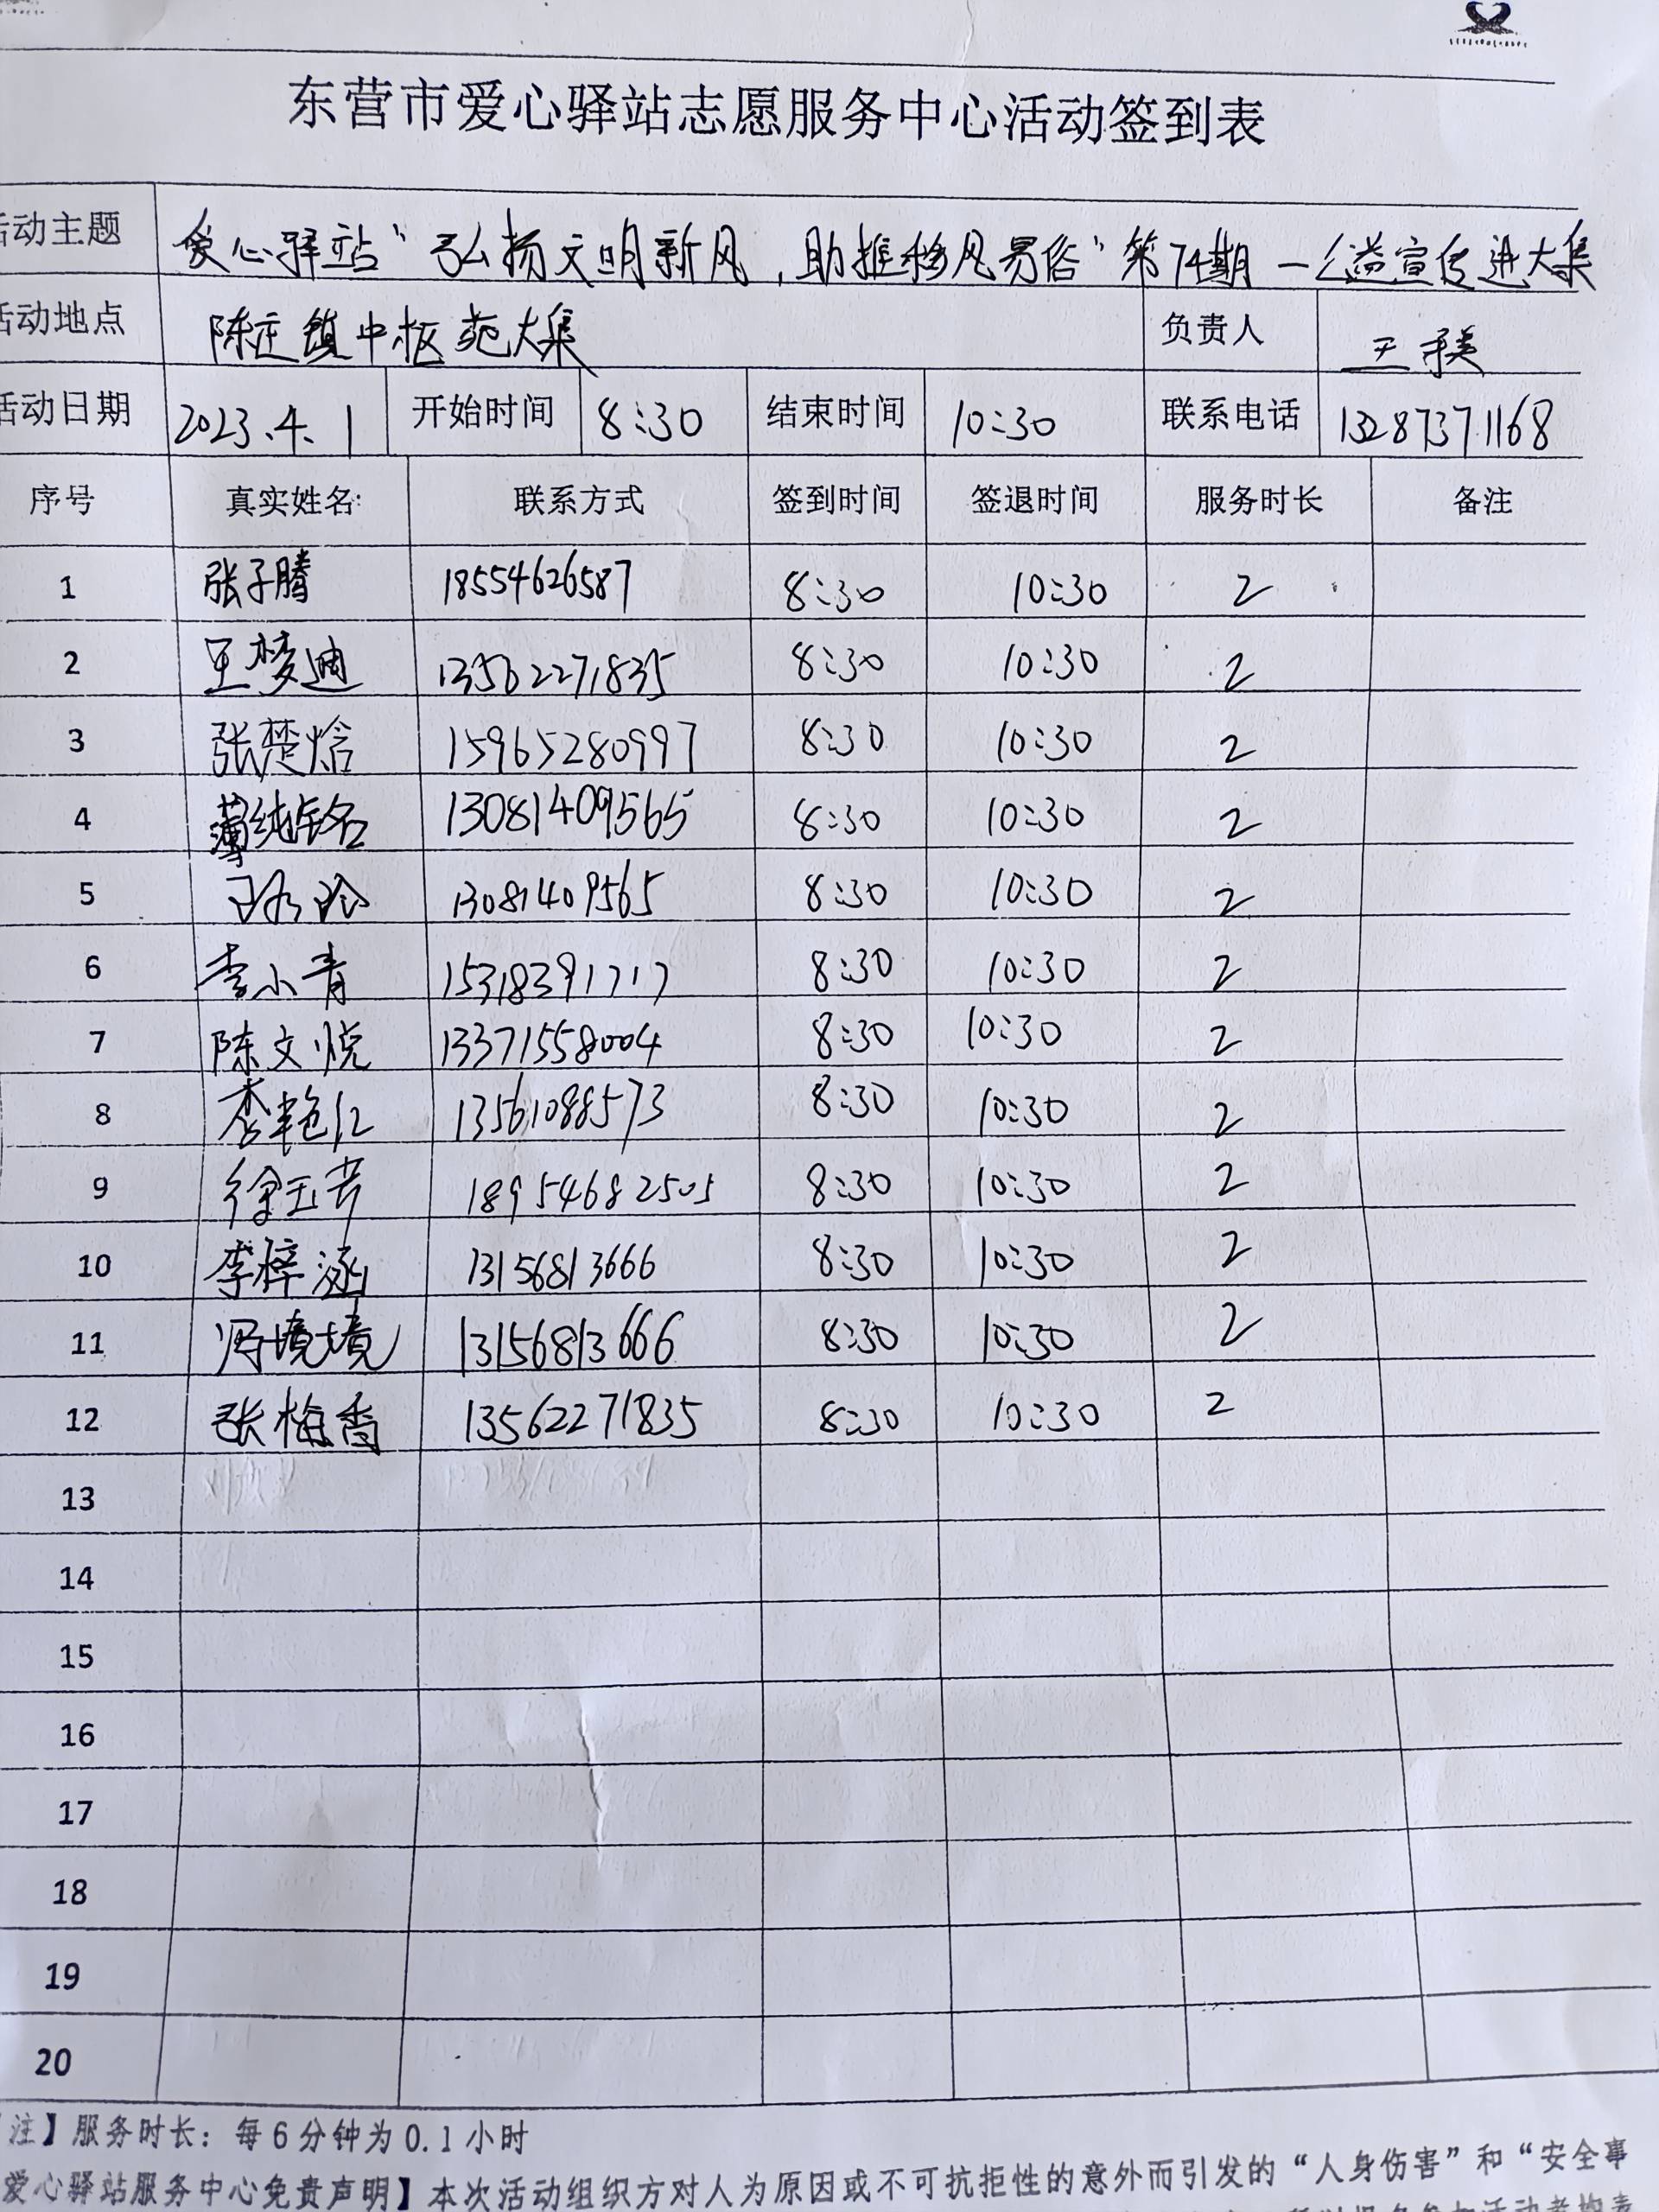 东营市爱心驿站志愿服务中心活动签到表
活动主题 爱心驿站“弘扬文明新风，助推移风易俗”第74期—公益宣传进大集
活动地点 陈庄镇中枢苑大集 负责人 王
活动日期 2023.4.1 开始时间 8:30 结束时间 10:30 联系电话 13287371168
序号 真实姓名: 联系方式 签到时间 签退时间 服务时长 备注
1 张子腾 18554626587 8:30 10:30 2
2 王梦迪 13562271835 8:30 10:30 2
3 张楚焓 15965280997 8:30 10:30 2
4 薄纯铭 13081409565 8:30 10:30 2
5 13081409565 8:30 10:30 2
6 李小青 15318391717 8:30 10:30 2
7 陈文悦 13371558004 8:30 10:30 2
8 李艳红 13561088573 8:30 10:30 2
9 徐玉芳 18954682505 8:30 10:30 2
10 李梓涵 13156813666 8:30 10:30 2
11 冯境境 13156813666 8:30 10:30 2
12 张梅香 13562271835 8:30 10:30 2
13
14
15
16
17
18
19
20
注】服务时长：每6分钟为0.1小时
爱心驿站服务中心免责声明】本次活动组织方对人为原因或不可抗拒性的意外而引发的“人身伤害”和“安全事